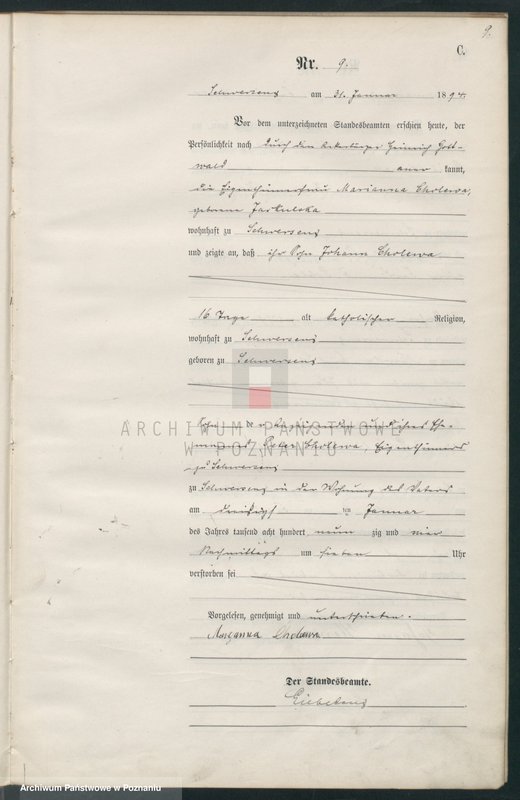 9.
C.
Nr. 9.
Schwersenz am 31. Januar 1894.
Vor dem unterzeichneten Standesbeamten erschien heute, der
Persönlichkeit nach durch den Ackerbürger Heinrich Gott-
wald aner kannt,
die Eigenthümerfrau Marianna Cholewa,
geborene Jaskulska
wohnhaft zu Schwersenz
und zeigte an, daß ihr Sohn Johann Cholewa
16 Tage alt katholischer Religion,
wohnhaft zu Schwersenz
geboren zu Schwersenz
ARCHIWUM PAŃSTWOWE
W POZNANIU
Sohn der Anzeigenden und ihres Ehe-
mannes Cholewa, Eigenthümers
zu Schwersenz
zu Schwersenz in der Wohnung des Vaters
am dreißigsten Januar
des Jahres tausend acht hundert neun zig und vier
Nachmittags um sieben Uhr
verstorben sei
Vorgelesen, genehmigt und unterschrieben.
Maryanna Cholewa
Der Standesbeamte.
Archiwum Państwowe w Poznaniu